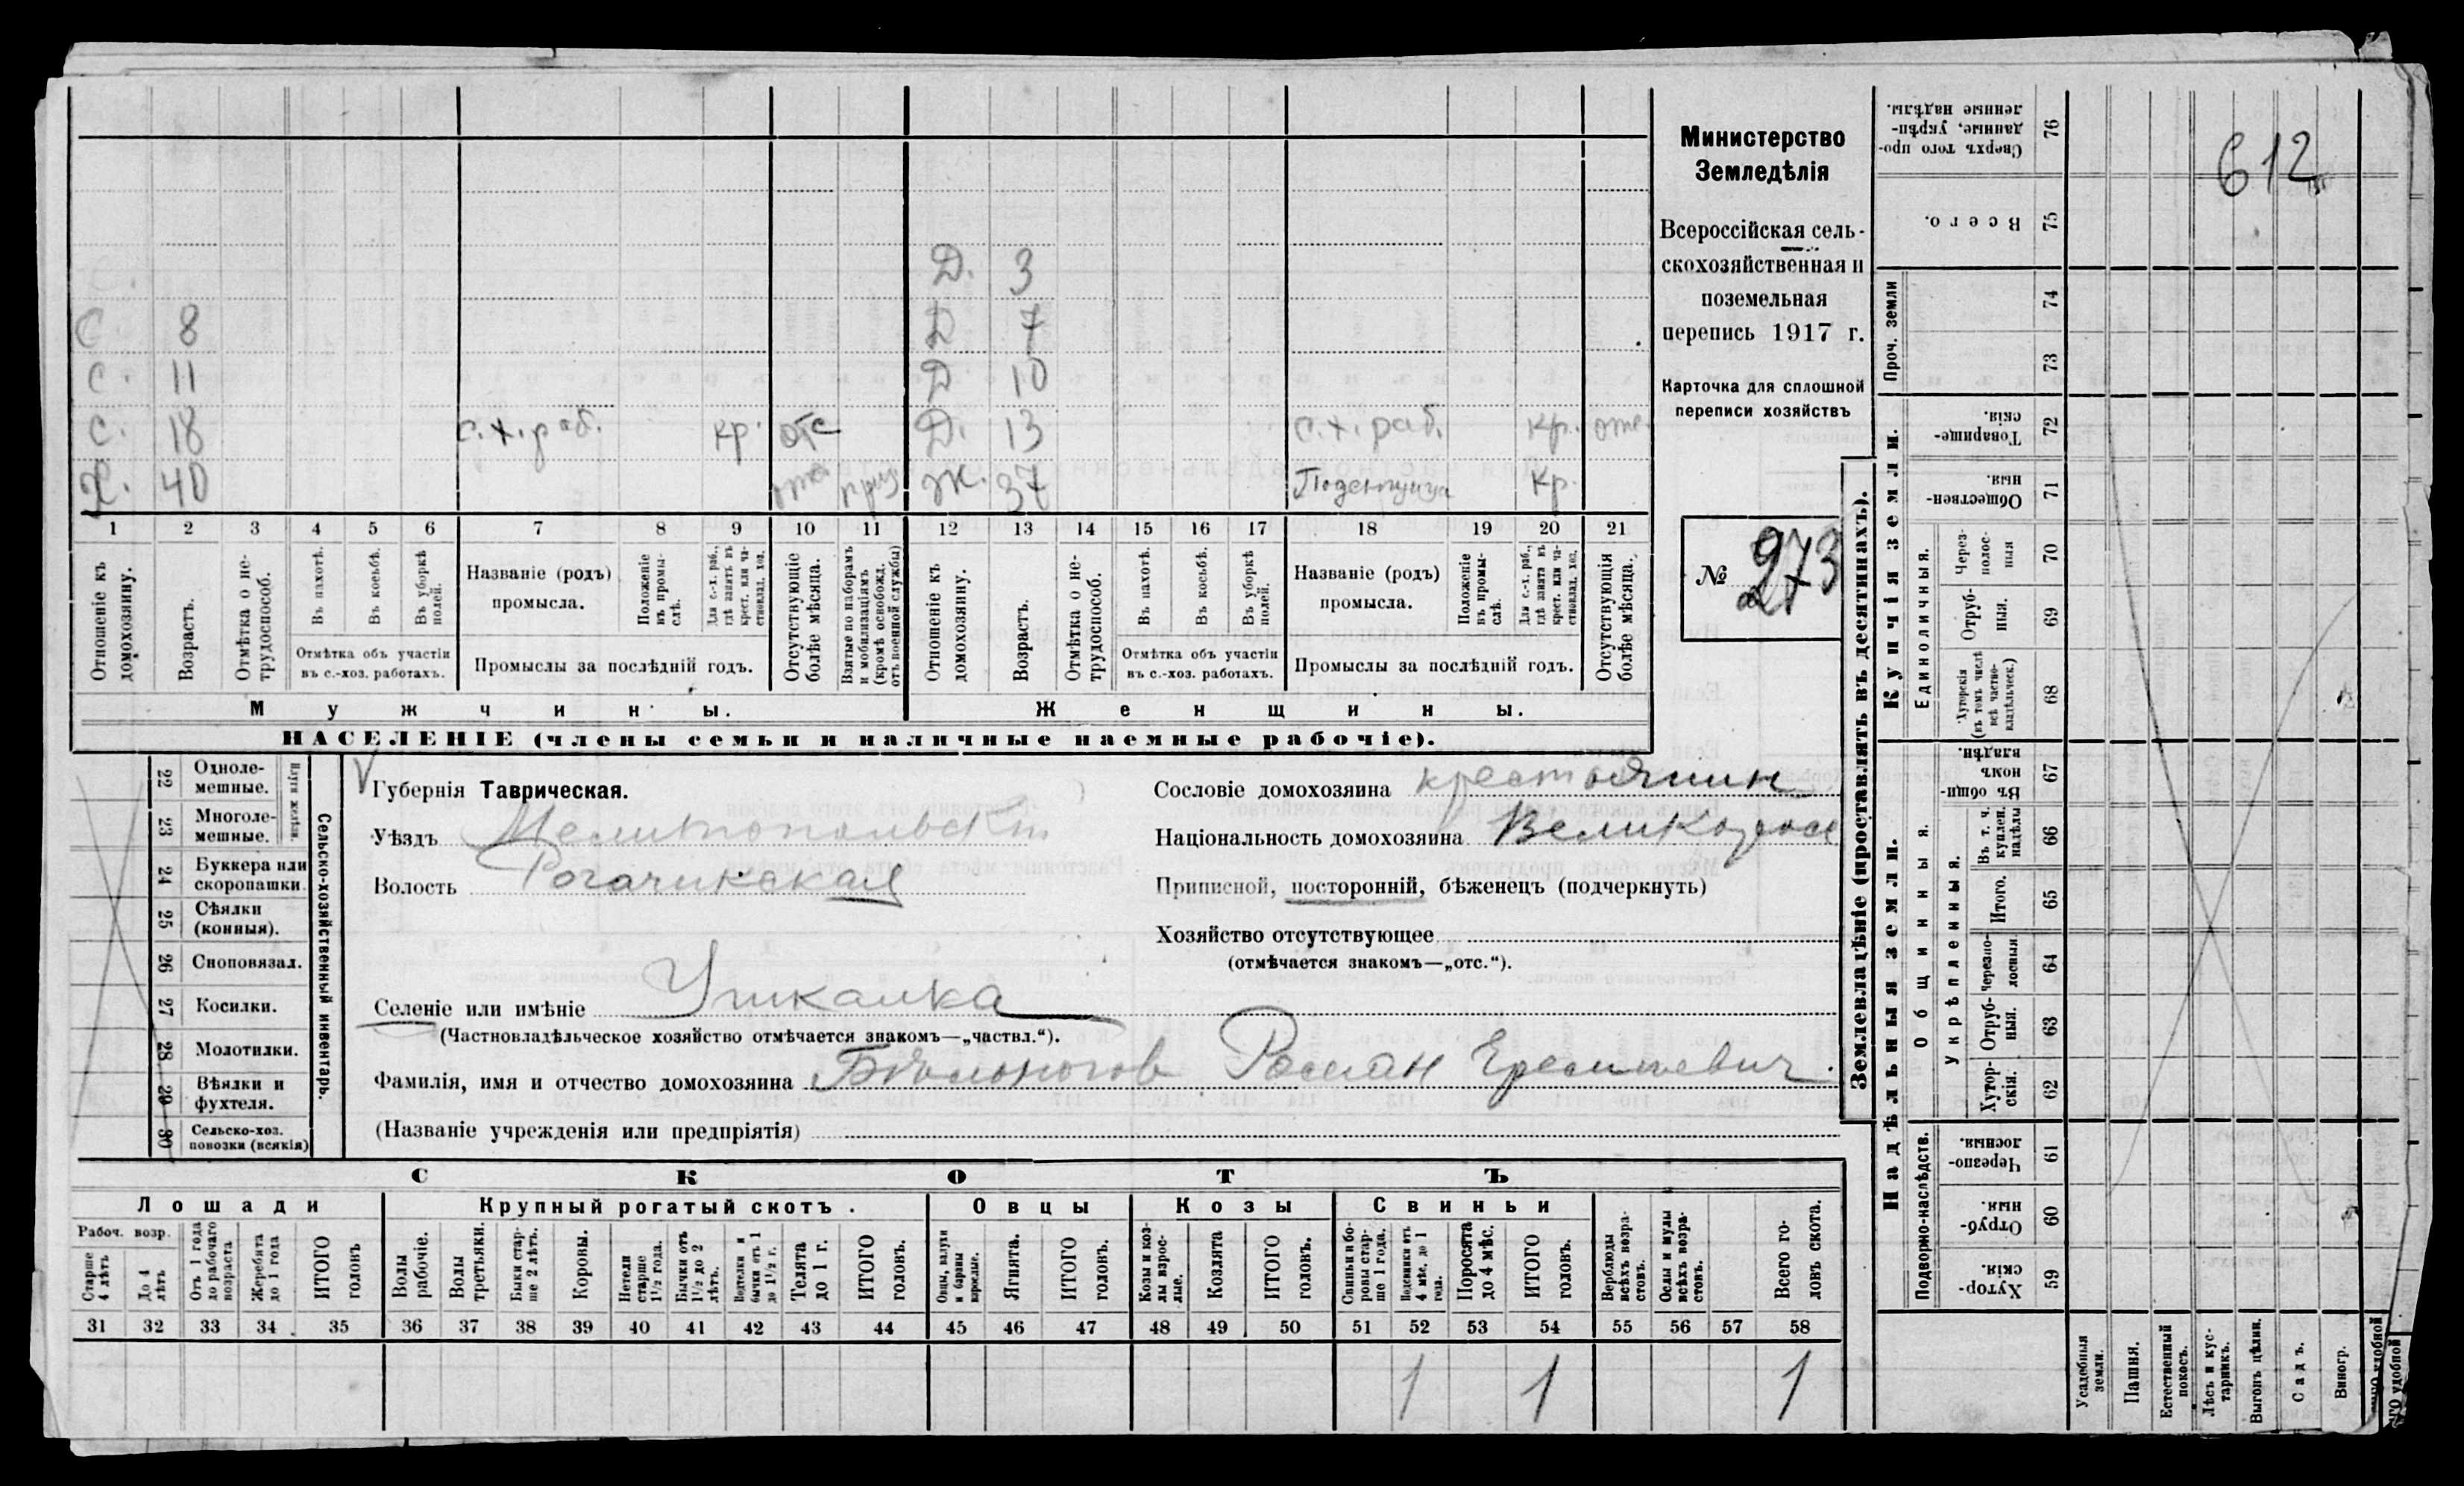 Министерство
Земледѣлія
Всероссійская сель-
скохозяйственная и
поземельная
перепись 1917 г.
Карточка для сплошной
переписи хозяйствъ
№ 273
612
Д. 3
С 8 Д 7
С. 11 Д 10
С. 18 с.х. раб. кр. отс Д. 13 с.х. раб. кр. отс.
Х. 40 Ж. 37 Поденщица кр.
1 2 3 4 5 6 7 8 9 10 11 12 13 14 15 16 17 18 19 20 21
Отношеніе къ домохозяину.
Возрастъ.
Отмѣтка о не-трудоспособ.
Въ пахотѣ.
Въ косьбѣ.
Въ уборкѣ полей.
Отмѣтка объ участіи
въ с.-хоз. работахъ.
Названіе (родъ)
промысла.
Положеніе въ промы-слѣ.
Для с.-х. раб., гдѣ занятъ въ крест. или ча-стновлад. хоз.
Промыслы за послѣдній годъ.
Отсутствующіе болѣе мѣсяца.
Взятые по наборамъ и мобилизаціямъ (кромѣ освобожд. отъ военной службы)
Отношеніе къ домохозяину.
Возрастъ.
Отмѣтка о не-трудоспособ.
Въ пахотѣ.
Въ косьбѣ.
Въ уборкѣ полей.
Отмѣтка объ участіи
въ с.-хоз. работахъ.
Названіе (родъ)
промысла.
Положеніе въ промы-слѣ.
Для с.-х. раб., гдѣ занята въ крест. или ча-стновлад. хоз.
Промыслы за послѣдній годъ.
Отсутствующія болѣе мѣсяца.
Мужчины. Женщины.
НАСЕЛЕНІЕ (члены семьи и наличные наемные рабочіе).
22 Одноле-мешные.
23 Многоле-мешные.
24 Буккера или скоропашки.
25 Сѣялки (конныя).
26 Сноповязал.
27 Косилки.
28 Молотилки.
29 Вѣялки и фухтеля.
30 Сельско-хоз. повозки (всякія)
Сельско-хозяйственный инвентарь.
Губернія Таврическая.
Уѣздъ Мелитопольскій
Волость Рогачикская
Селеніе или имѣніе Ушкалка
(Частновладѣльческое хозяйство отмѣчается знакомъ—„частвл.“).
Фамилія, имя и отчество домохозяина Бѣлоногов Роман Еремеевич.
(Названіе учрежденія или предпріятія)
Сословіе домохозяина крестьянин
Національность домохозяина Великоросс
Приписной, посторонній, бѣженецъ (подчеркнуть)
Хозяйство отсутствующее
(отмѣчается знакомъ—„отс.“).
СКОТЪ
Лошади Крупный рогатый скотъ. Овцы Козы Свиньи
Рабоч. возр.
Старше 4 лѣтъ
До 4 лѣтъ
Отъ 1 года до рабочаго возраста
Жеребята до 1 года
ИТОГО головъ
Волы рабочіе.
Волы третьяки.
Быки стар-ше 2 лѣтъ.
Коровы.
Нетели старше 1½ года.
Бычки отъ 1½ до 2 лѣтъ.
Телята до 1 г.
ИТОГО головъ.
Овцы, валухи и бараны взрослые.
Ягнята.
ИТОГО головъ.
Козы и коз-лы взрос-лые.
Козлята
ИТОГО головъ.
Свиньи и бо-ровы стар-ше 1 года.
Подсвинки отъ 4 мѣс. до 1 года.
Поросята до 4 мѣс.
ИТОГО головъ.
Верблюды всѣхъ возра-стовъ.
Ослы и мулы всѣхъ возра-стовъ.
Всего го-ловъ скота.
31 32 33 34 35 36 37 38 39 40 41 42 43 44 45 46 47 48 49 50 51 52 53 54 55 56 57 58
1 1 1
Землевладѣніе (проставлять въ десятинахъ).
Надѣльныя земли. Купчія земли. Проч. земли
Подворно-наслѣдств.
Общинныя.
Укрѣпленныя.
Единоличныя.
Сверхъ того про-данные, укрѣп-ленные надѣлы. 76
Всего. 75
74
73
Товарище-скія. 72
Обществен-ныя. 71
Через-полос-ныя 70
Отруб-ныя. 69
Хуторскія (въ томъ числѣ всѣ частно-владѣльческ.) 68
Въ общи-номъ владѣн. 67
Въ т. ч. куплен. надѣлы 66
Итого. 65
Черезпо-лосныя. 64
Отруб-ныя. 63
Хутор-скія. 62
Черезпо-лосныя. 61
Отруб-ныя 60
Хутор-скія. 59
Усадебныя земли.
Пашня.
Естественный покосъ.
Лѣсъ и кус-тарникъ.
Выгонъ цѣлин.
Садъ.
Виногр.